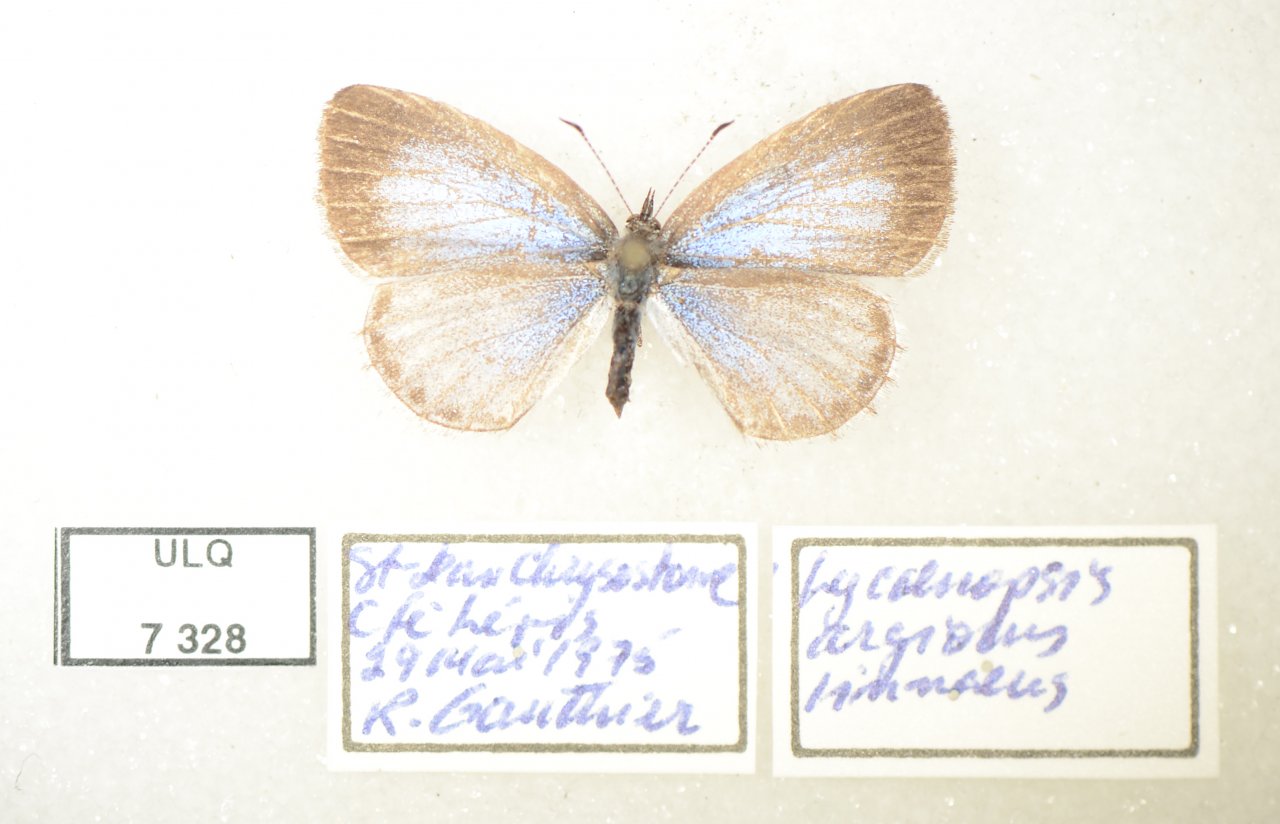 ULQ
7 328
St-Jean Chrysostome
Cté Lévis
29 Mai 1975
R. Gauthier
Lycaenopsis
argiolus
Linnaeus